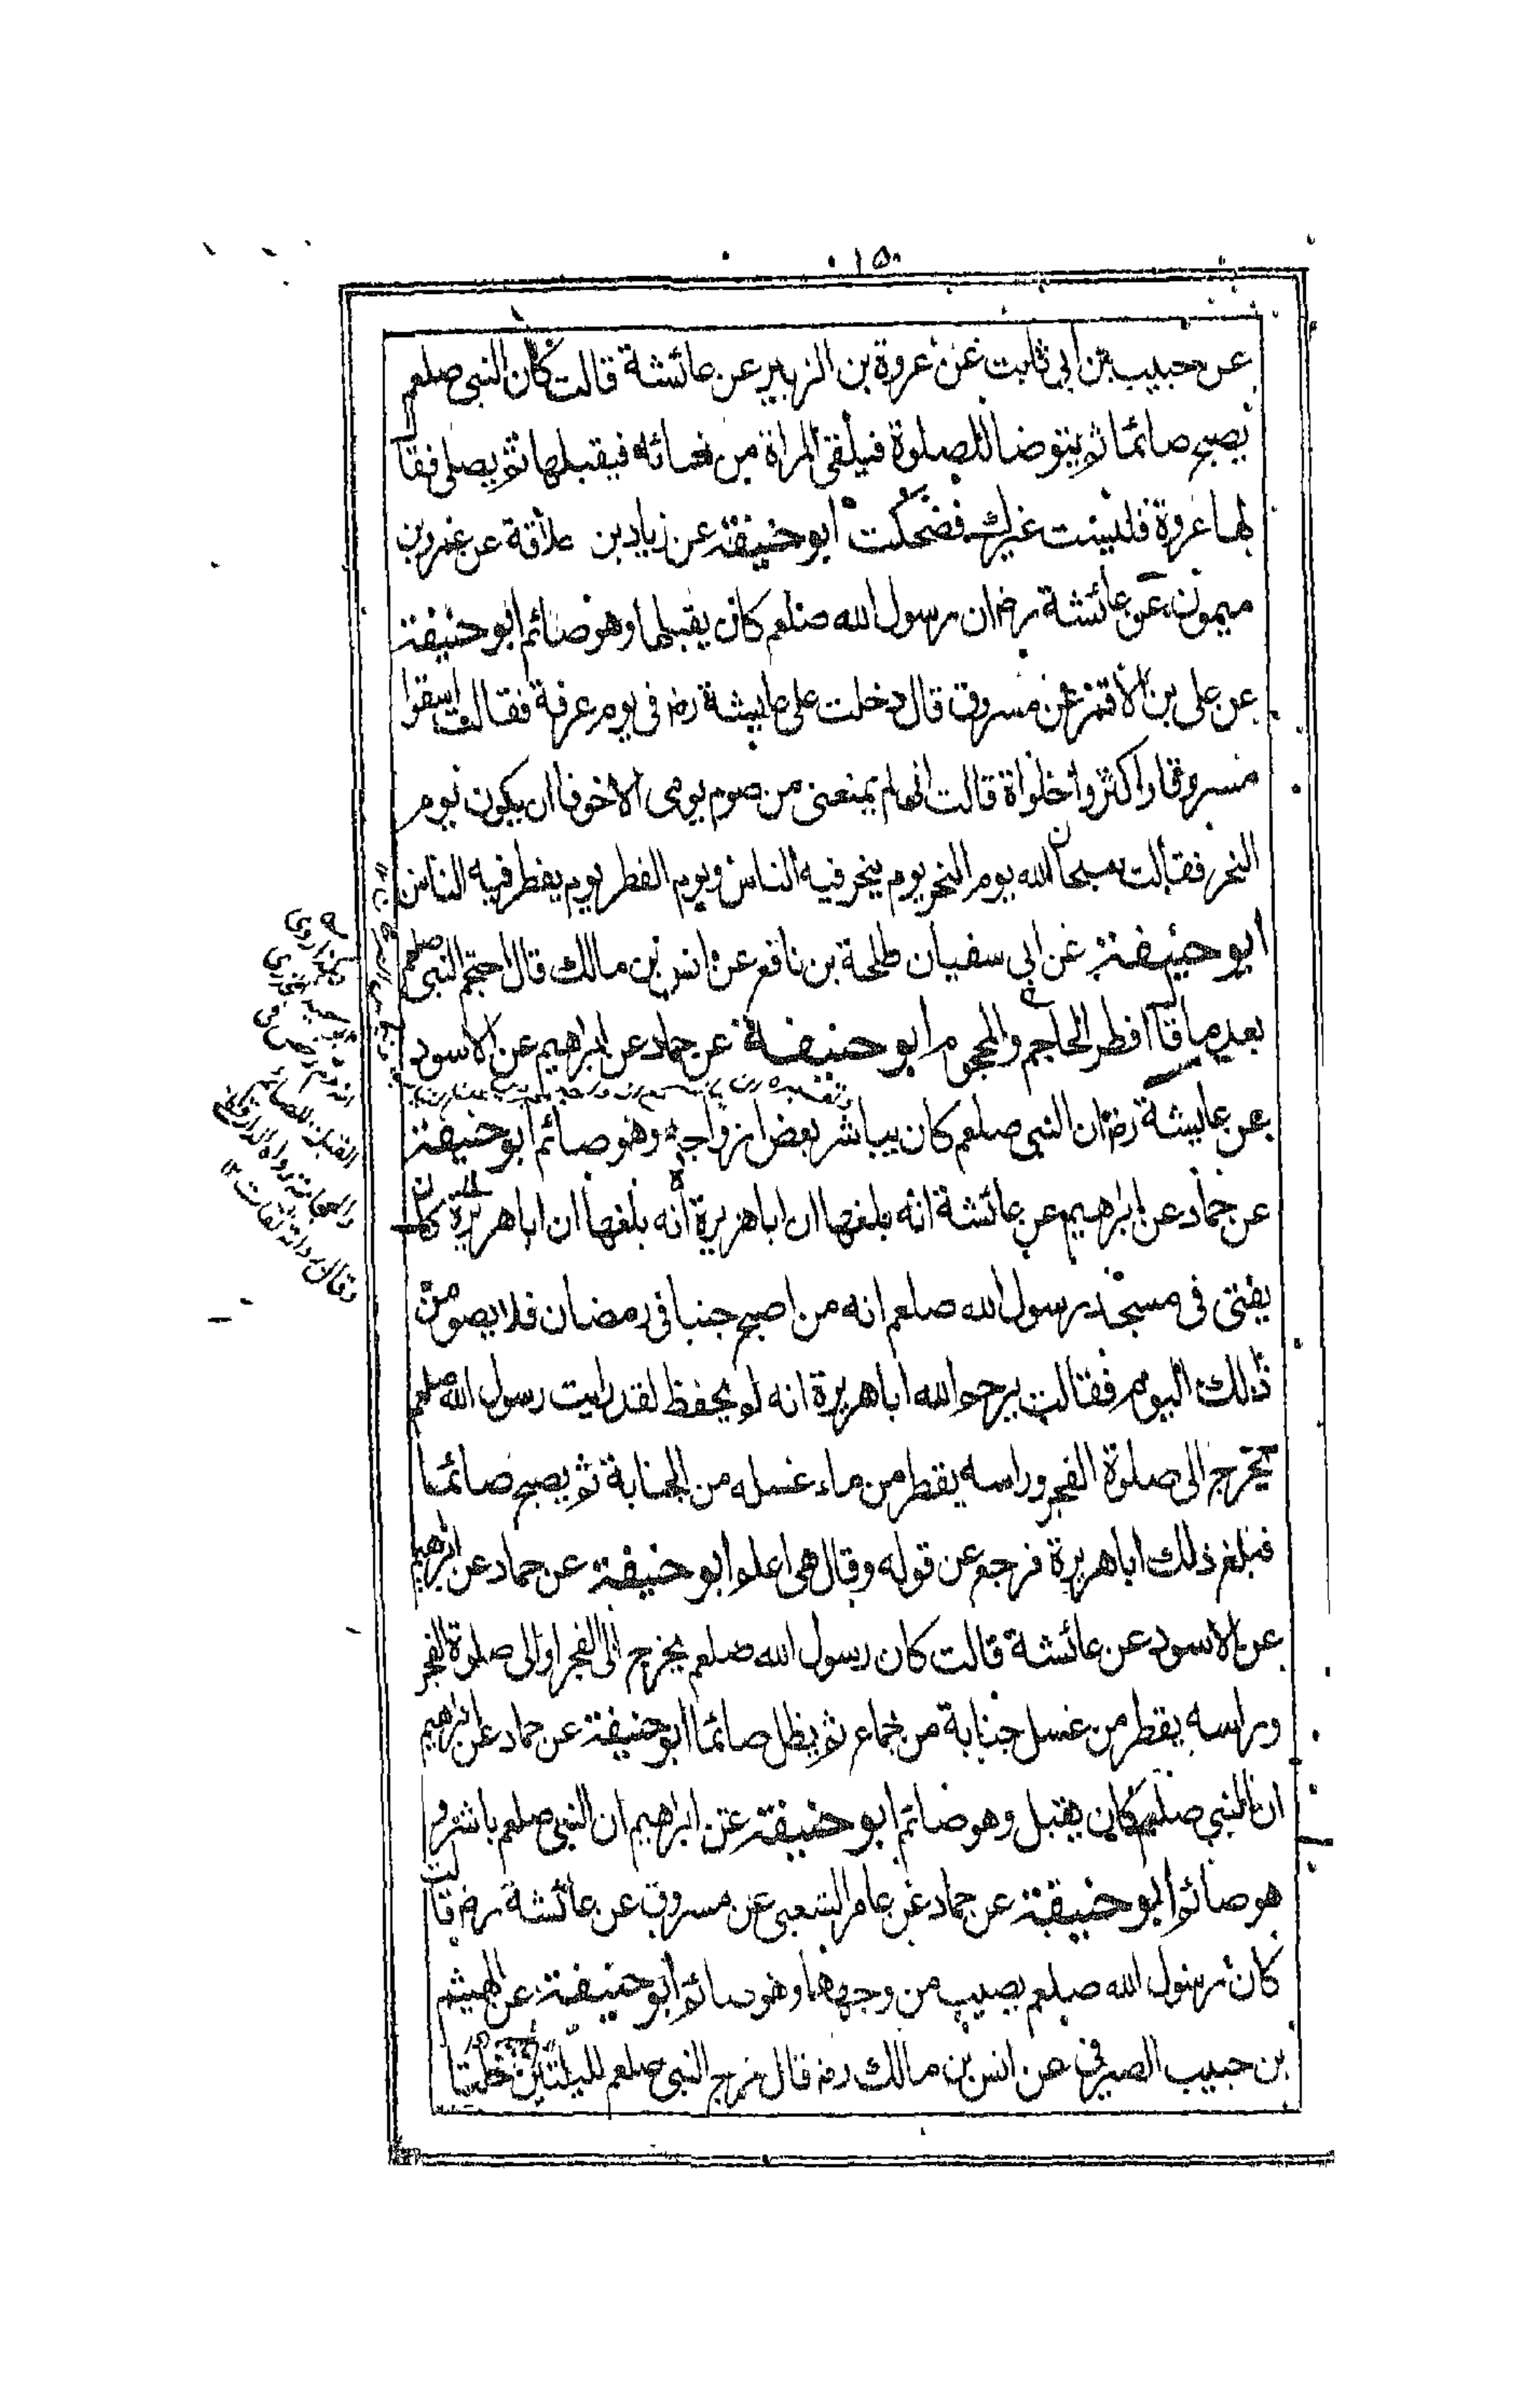 ١٥٠
عن حبيب بن ابي ثابت عن عروة بن الزبير عن عائشة قالت كان النبي صلعم
يصبح صائما ثم يتوضا للصلوة فيلقى المراة من نسائه فيقبلها ثم يصلي فقال
لها عروة فليست غيرك فضحكت ابو حنيفة عن زياد بن علاقة عن عمرو بن
ميمون عن عائشة رض ان رسول الله صلعم كان يقبلها وهو صائم ابو حنيفة
عن علي بن الاقمر عن مسروق قال دخلت على عايشة رض في يوم عرفة فقالت اسقوا
مسروقا واكثروا حلواة قالت اني لم يمنعني من صوم يومي الا خوفا ان يكون يوم
النحر فقالت سبحان الله يوم النحر يوم ينحر فيه الناس ويوم الفطر يوم يفطر فيه الناس
ابو حنيفة عن ابي سفيان طلحة بن نافع عن انس بن مالك قال احتجم النبي صلعم
بعد ما قال افطر الحاجم والمحجوم ابو حنيفة عن حماد عن ابراهيم عن الاسود
عن عايشة رض ان النبي صلعم كان يباشر بعض ازواجه وهو صائم ابو حنيفة
عن حماد عن ابرهيم عن عائشة انه بلغها ان ابا هريرة انه بلغها ان ابا هريرة كان
يفتي في مسجد رسول الله صلعم انه من اصبح جنبا في رمضان فلا يصومن
ذلك اليوم فقالت يرحم الله ابا هريرة انه لم يحفظ لقد رايت رسول الله صلعم
يخرج الى صلوة الفجر وراسه يقطر من ماء غسله من الجنابة ثم يصبح صائما
فبلغ ذلك ابا هريرة فرجع عن قوله وقال هي اعلم ابو حنيفة عن حماد عن ابرهيم
عن الاسود عن عائشة قالت كان رسول الله صلعم يخرج الى الفجر او الى صلوة الفجر
وراسه يقطر من غسل جنابة من جماع ثم يظل صائما ابو حنيفة عن حماد عن ابراهيم
ان النبي صلعم كان يقبل وهو صائم ابو حنيفة عن ابراهيم ان النبي صلعم باشر و
هو صائم ابو حنيفة عن حماد عن عامر الشعبي عن مسروق عن عائشة رض قالت
كان رسول الله صلعم يصيب من وجهها وهو صائم ابو حنيفة عن الهيثم
بن حبيب الصيرفي عن انس بن مالك رض قال خرج النبي صلعم لليلتين خلتا
القبلة للصائم
والحجامة رواه الدارقطني
وقال رواته ثقات ١٢